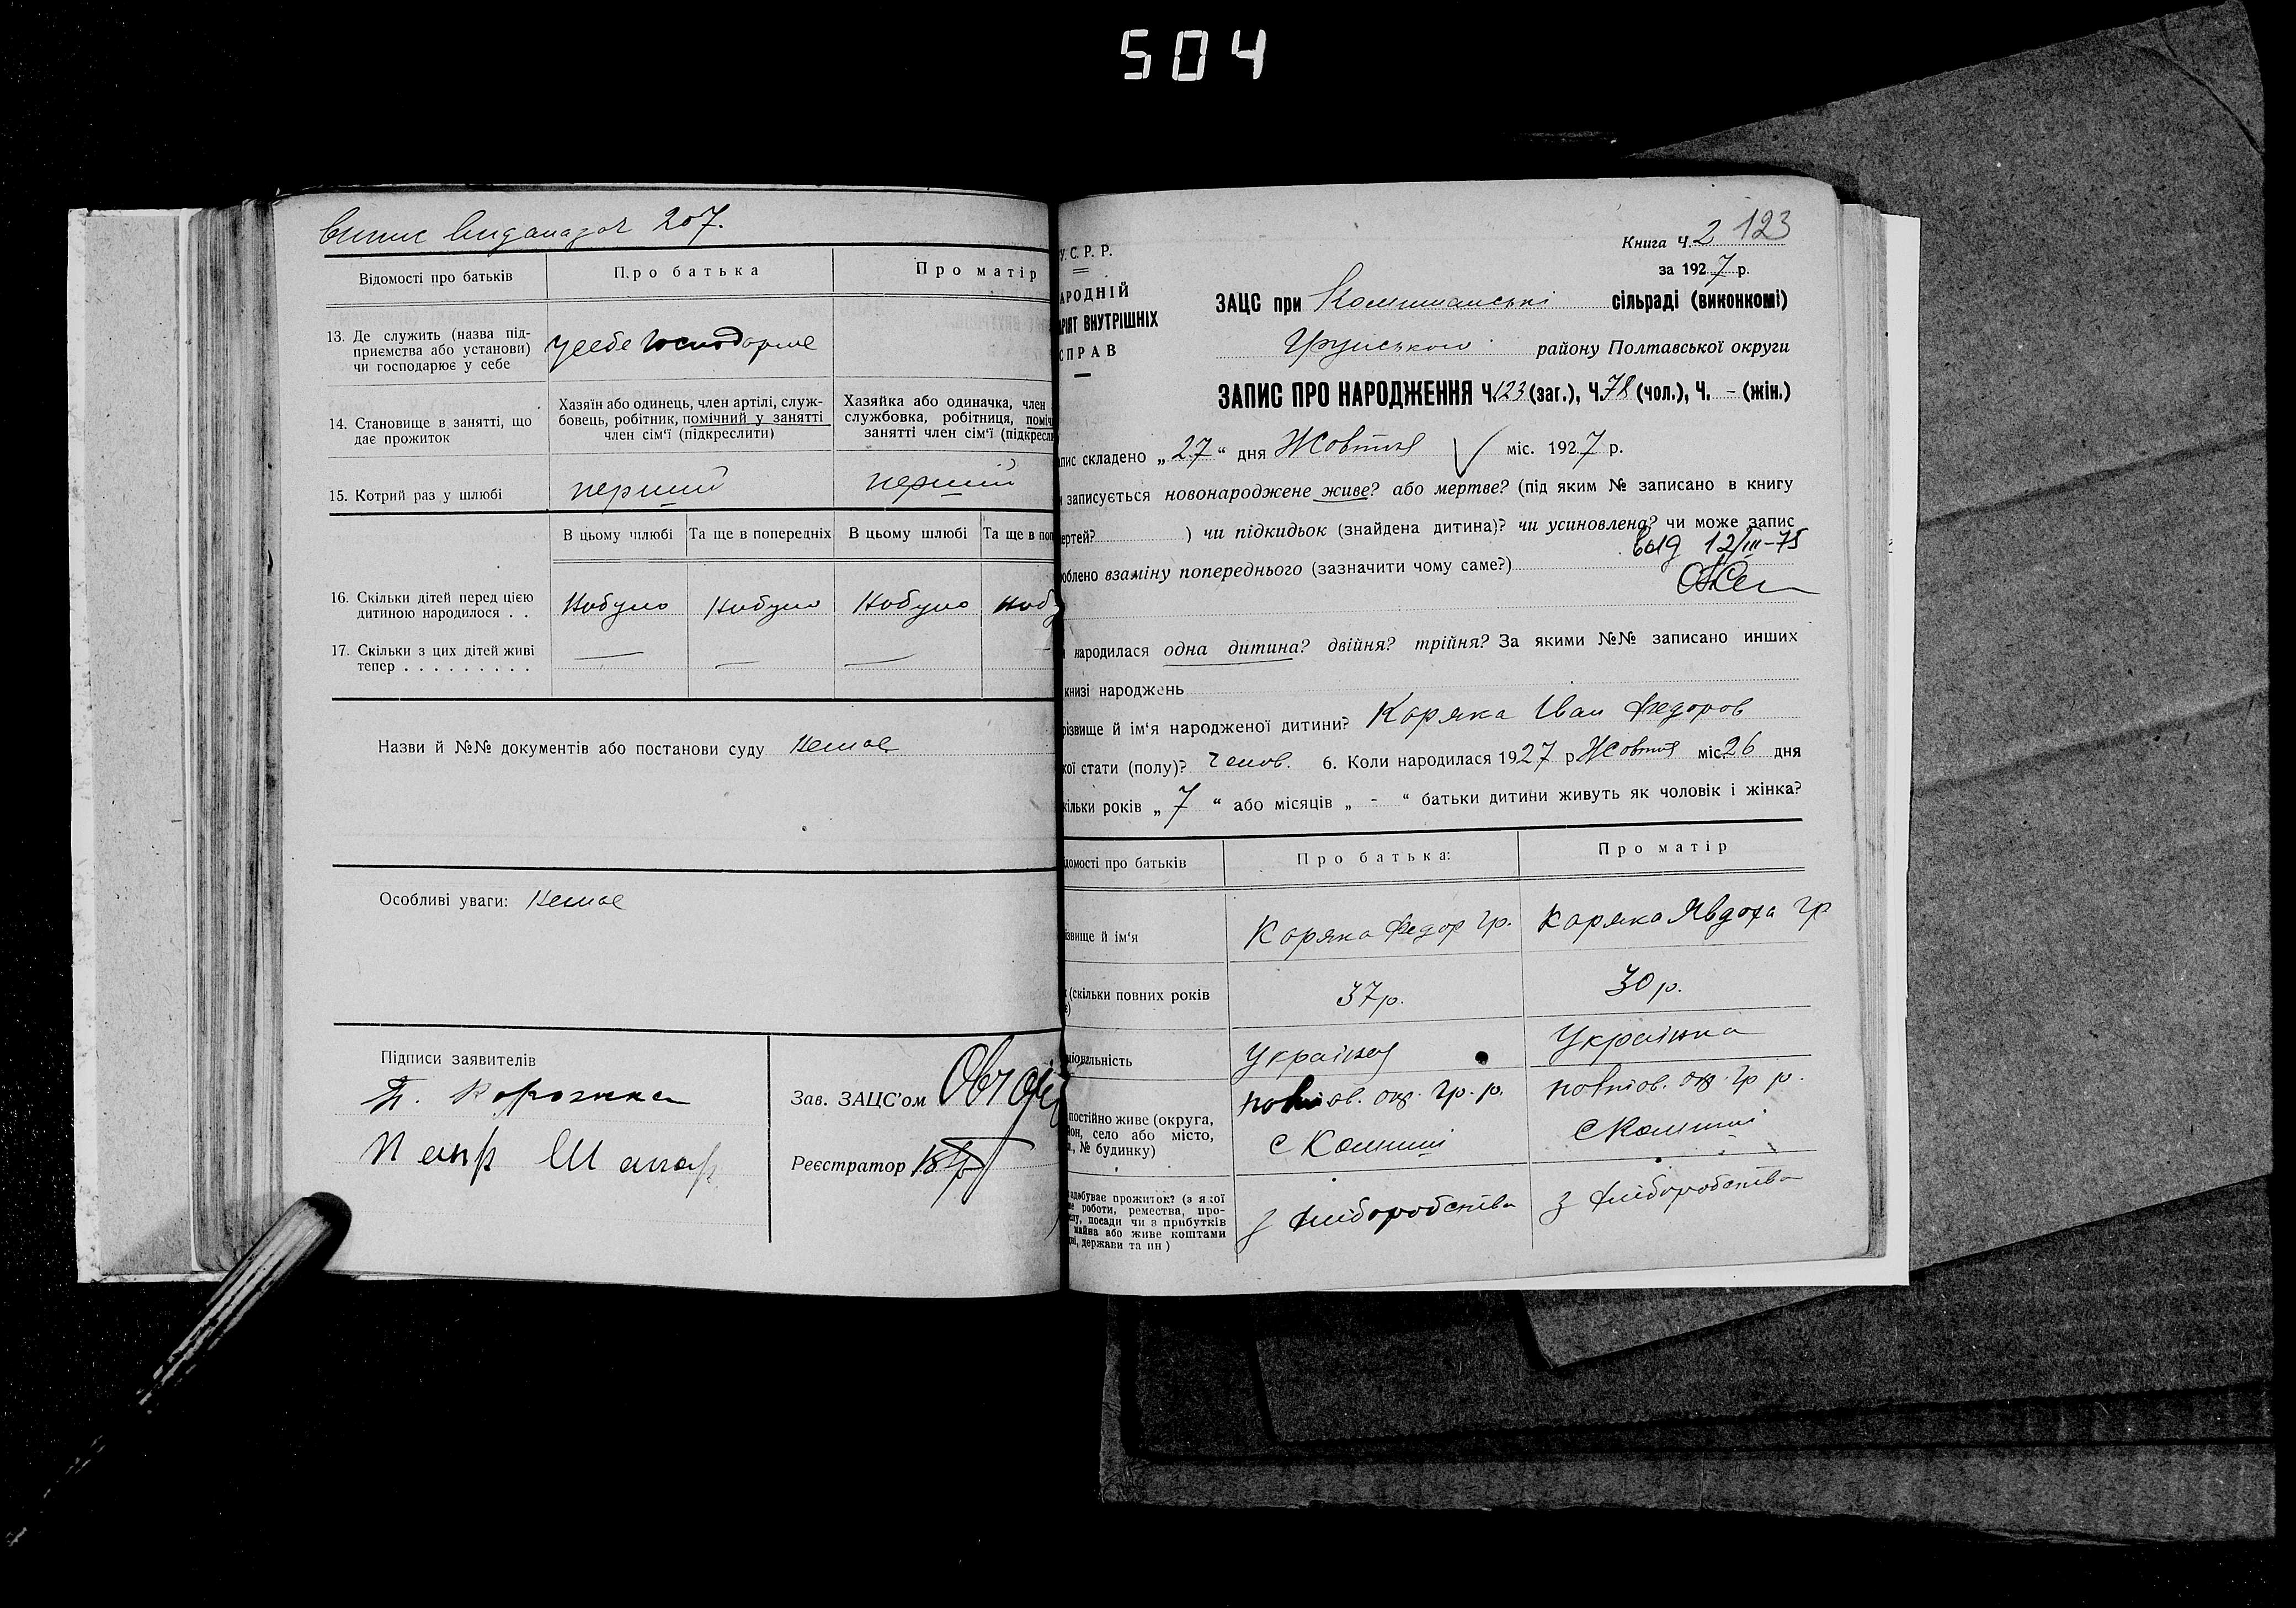 504
207.
Відомості про батьків
Про батька
Про матір
13. Де служить (назва під-
приємства або установи)
чи господарює у себе
усебе господорює
14. Становище в занятті, що
дає прожиток
Хазяїн або одинець, член артілі, служ-
бовець, робітник, помічний у занятті
член сім'ї (підкреслити)
Хазяйка або одиначка, член
службовка, робітниця, поміч
занятті член сім'ї (підкресли
15. Котрий раз у шлюбі
перший
перший
В цьому шлюбі
Та ще в попередніх
В цьому шлюбі
Та ще в поп
16. Скільки дітей перед цією
дитиною народилося . .
Небуло
Небуло
Небуло
Неб
17. Скільки з цих дітей живі
тепер . . . . . . . . .
—
—
—
Назви й №№ документів або постанови суду Немає
Особливі уваги: Немає
Підписи заявителів
Зав. ЗАЦС'ом
Реєстратор
Книга Ч. 2 123
за 1927 р.
У. С. Р. Р.
АРОДНІЙ
АРІЯТ ВНУТРІШНІХ
СПРАВ
ЗАЦС при Комишанські сільраді (виконкомі)
Грунського району Полтавської округи
ЗАПИС ПРО НАРОДЖЕННЯ Ч. 123 (заг.), Ч. 78 (чол.), Ч. - (жін.)
пис складено „27“ дня Жовтня міс. 1927 р.
записується новонароджене живе? або мертве? (під яким № записано в книгу
ертей? ) чи підкидьок (знайдена дитина)? чи усиновлена? чи може запис
выд 12/III-75
облено взаміну попереднього (зазначити чому саме?)
народилася одна дитина? двійня? трійня? За якими №№ записано инших
книзі народжень
різвище й ім'я народженої дитини? Коряка Іван Федоров
кої стати (полу)? Чолов. 6. Коли народилася 1927 р Жовтня міс. 26 дня
кільки років „7“ або місяців „ - “ батьки дитини живуть як чоловік і жінка?
домості про батьків
Про батька:
Про матір
ізвище й ім'я
Коряка Федор Гр.
Коряка Явдоха Гр
(скільки повних років
37 р.
30 р.
ціональність
Українец
Українка
постійно живе (округа,
йон, село або місто,
, № будинку)
полтов. окр. Гр. р.
с Комиші
полтов. окр. Гр р.
с Комиші
здобуває прожиток? (з якої
роботи, ремества, про-
слу, посади чи з прибутків
майна або живе коштами
ді, держави та ин)
з хліборобства
з хліборобства